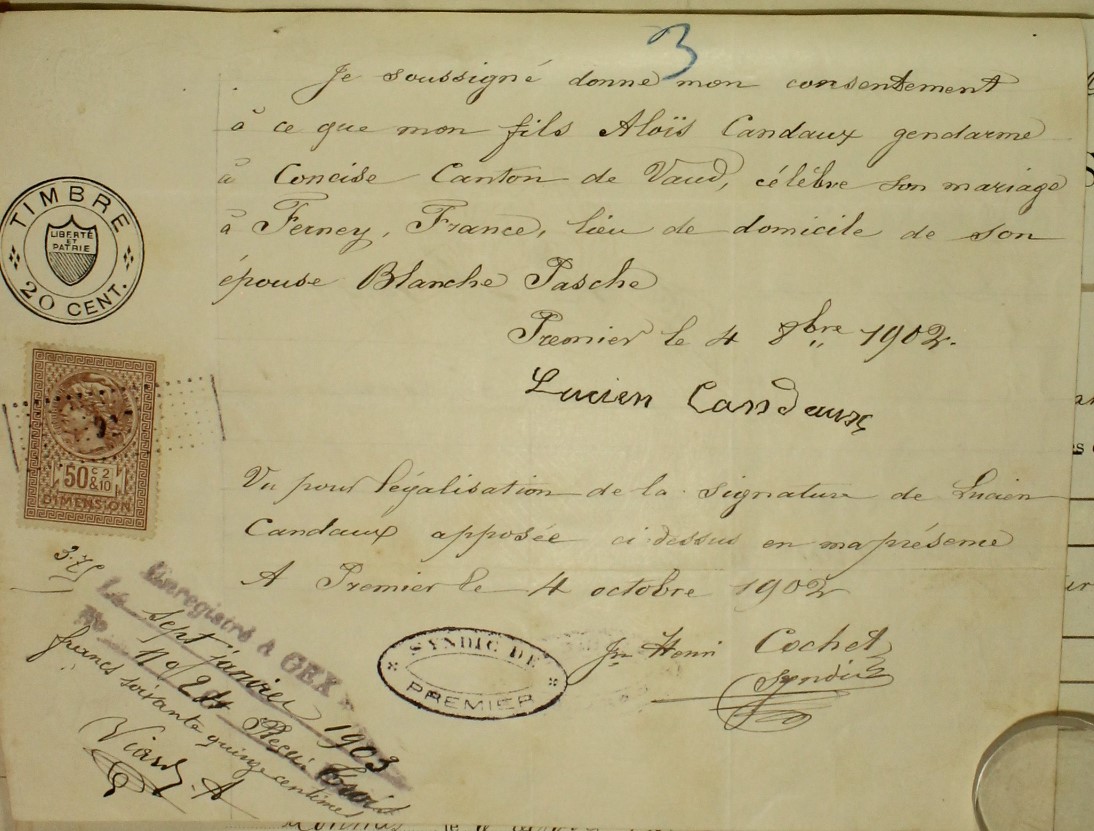 3
Je soussigné donne mon consentement
à ce que mon fils Aloïs Candaux gendarme
à Concise Canton de Vaud, célèbre son mariage
à Ferney, France, lieu de domicile de son
épouse Blanche Pasche
Premier le 4 8bre 1902.
Lucien Candaux
Vu pour légalisation de la signature de Lucien
Candaux apposée ci-dessus en ma présence
A Premier le 4 octobre 1902
Jn Henri Cochet
Syndic
SYNDIC DE
PREMIER
TIMBRE
LIBERTÉ
ET
PATRIE
20 CENT.
50 c 2
& 10
DIMENSION
3.75
Enregistré à GEX
Le sept janvier 1903
Fo 119 Reçu trois
francs soixante quinze centimes